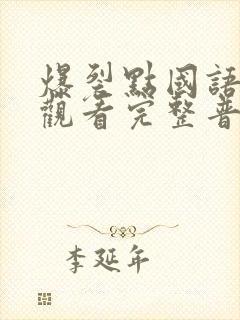 爆裂點國語
觀看完整普
李延年